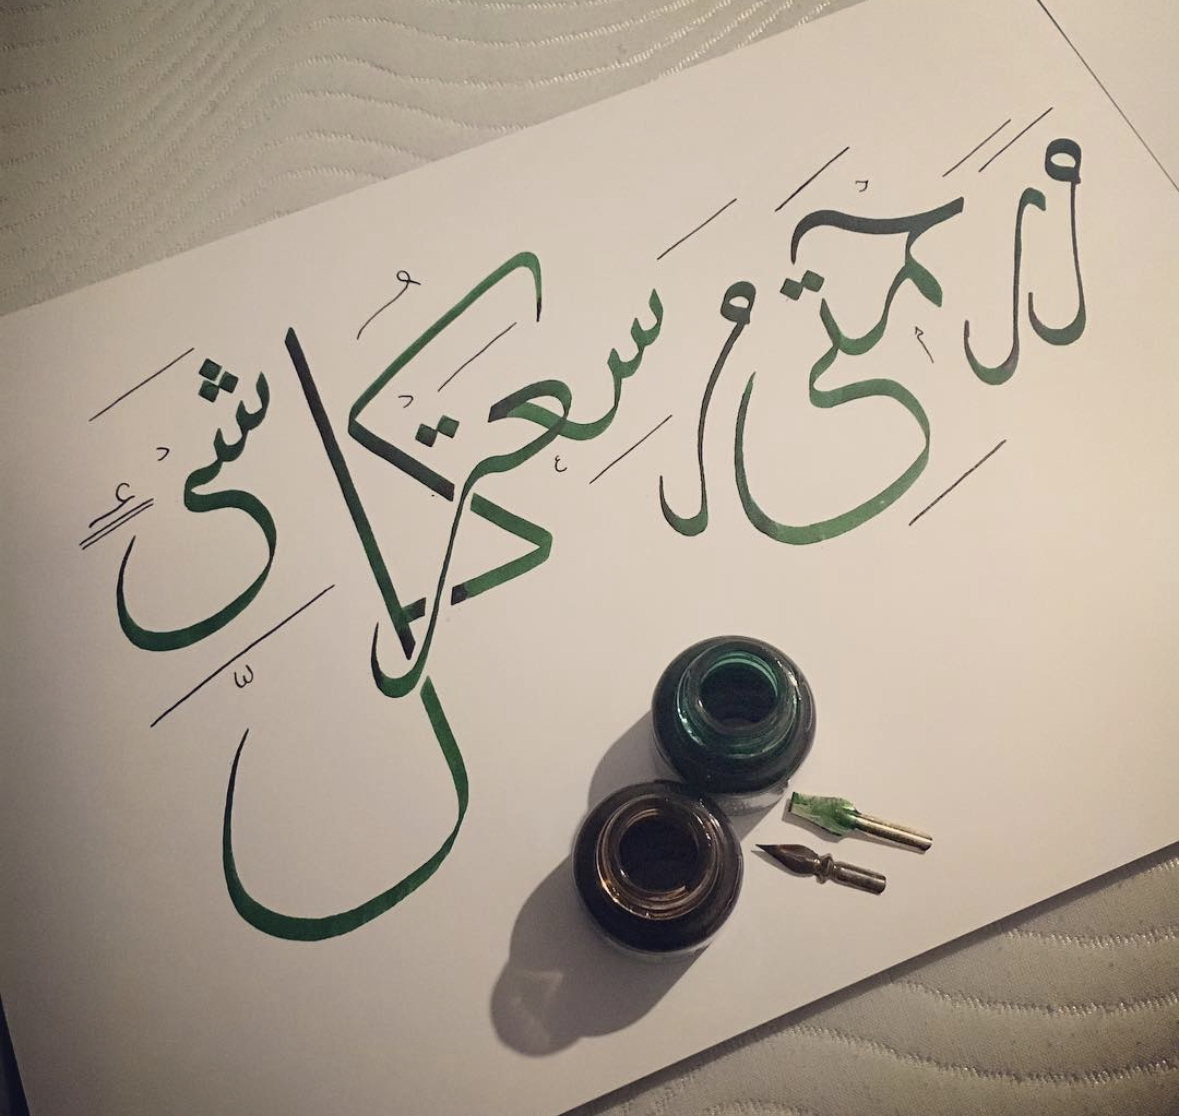 ورحمتي وسعت كل شيء